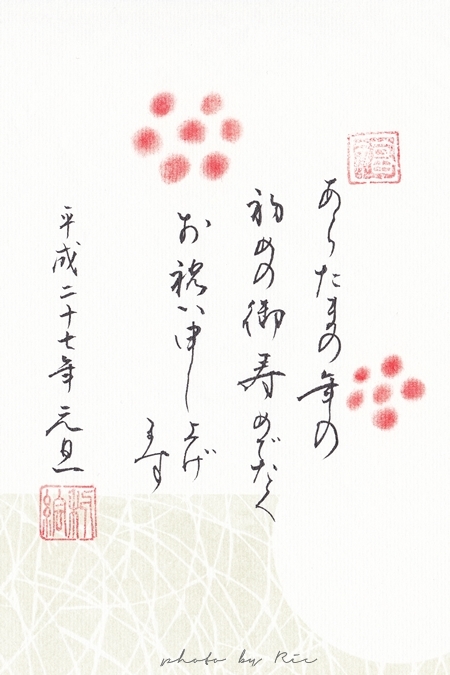 あらたまの年の
初めの御寿めでたく
お祝い申し上げ
ます
平成二十七年 元旦
photo by Ric